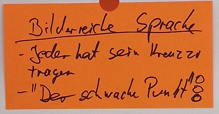 Bilderreiche Sprache
- Jeder hat sein Kreuz zu
tragen
- "Der schwache Punkt"